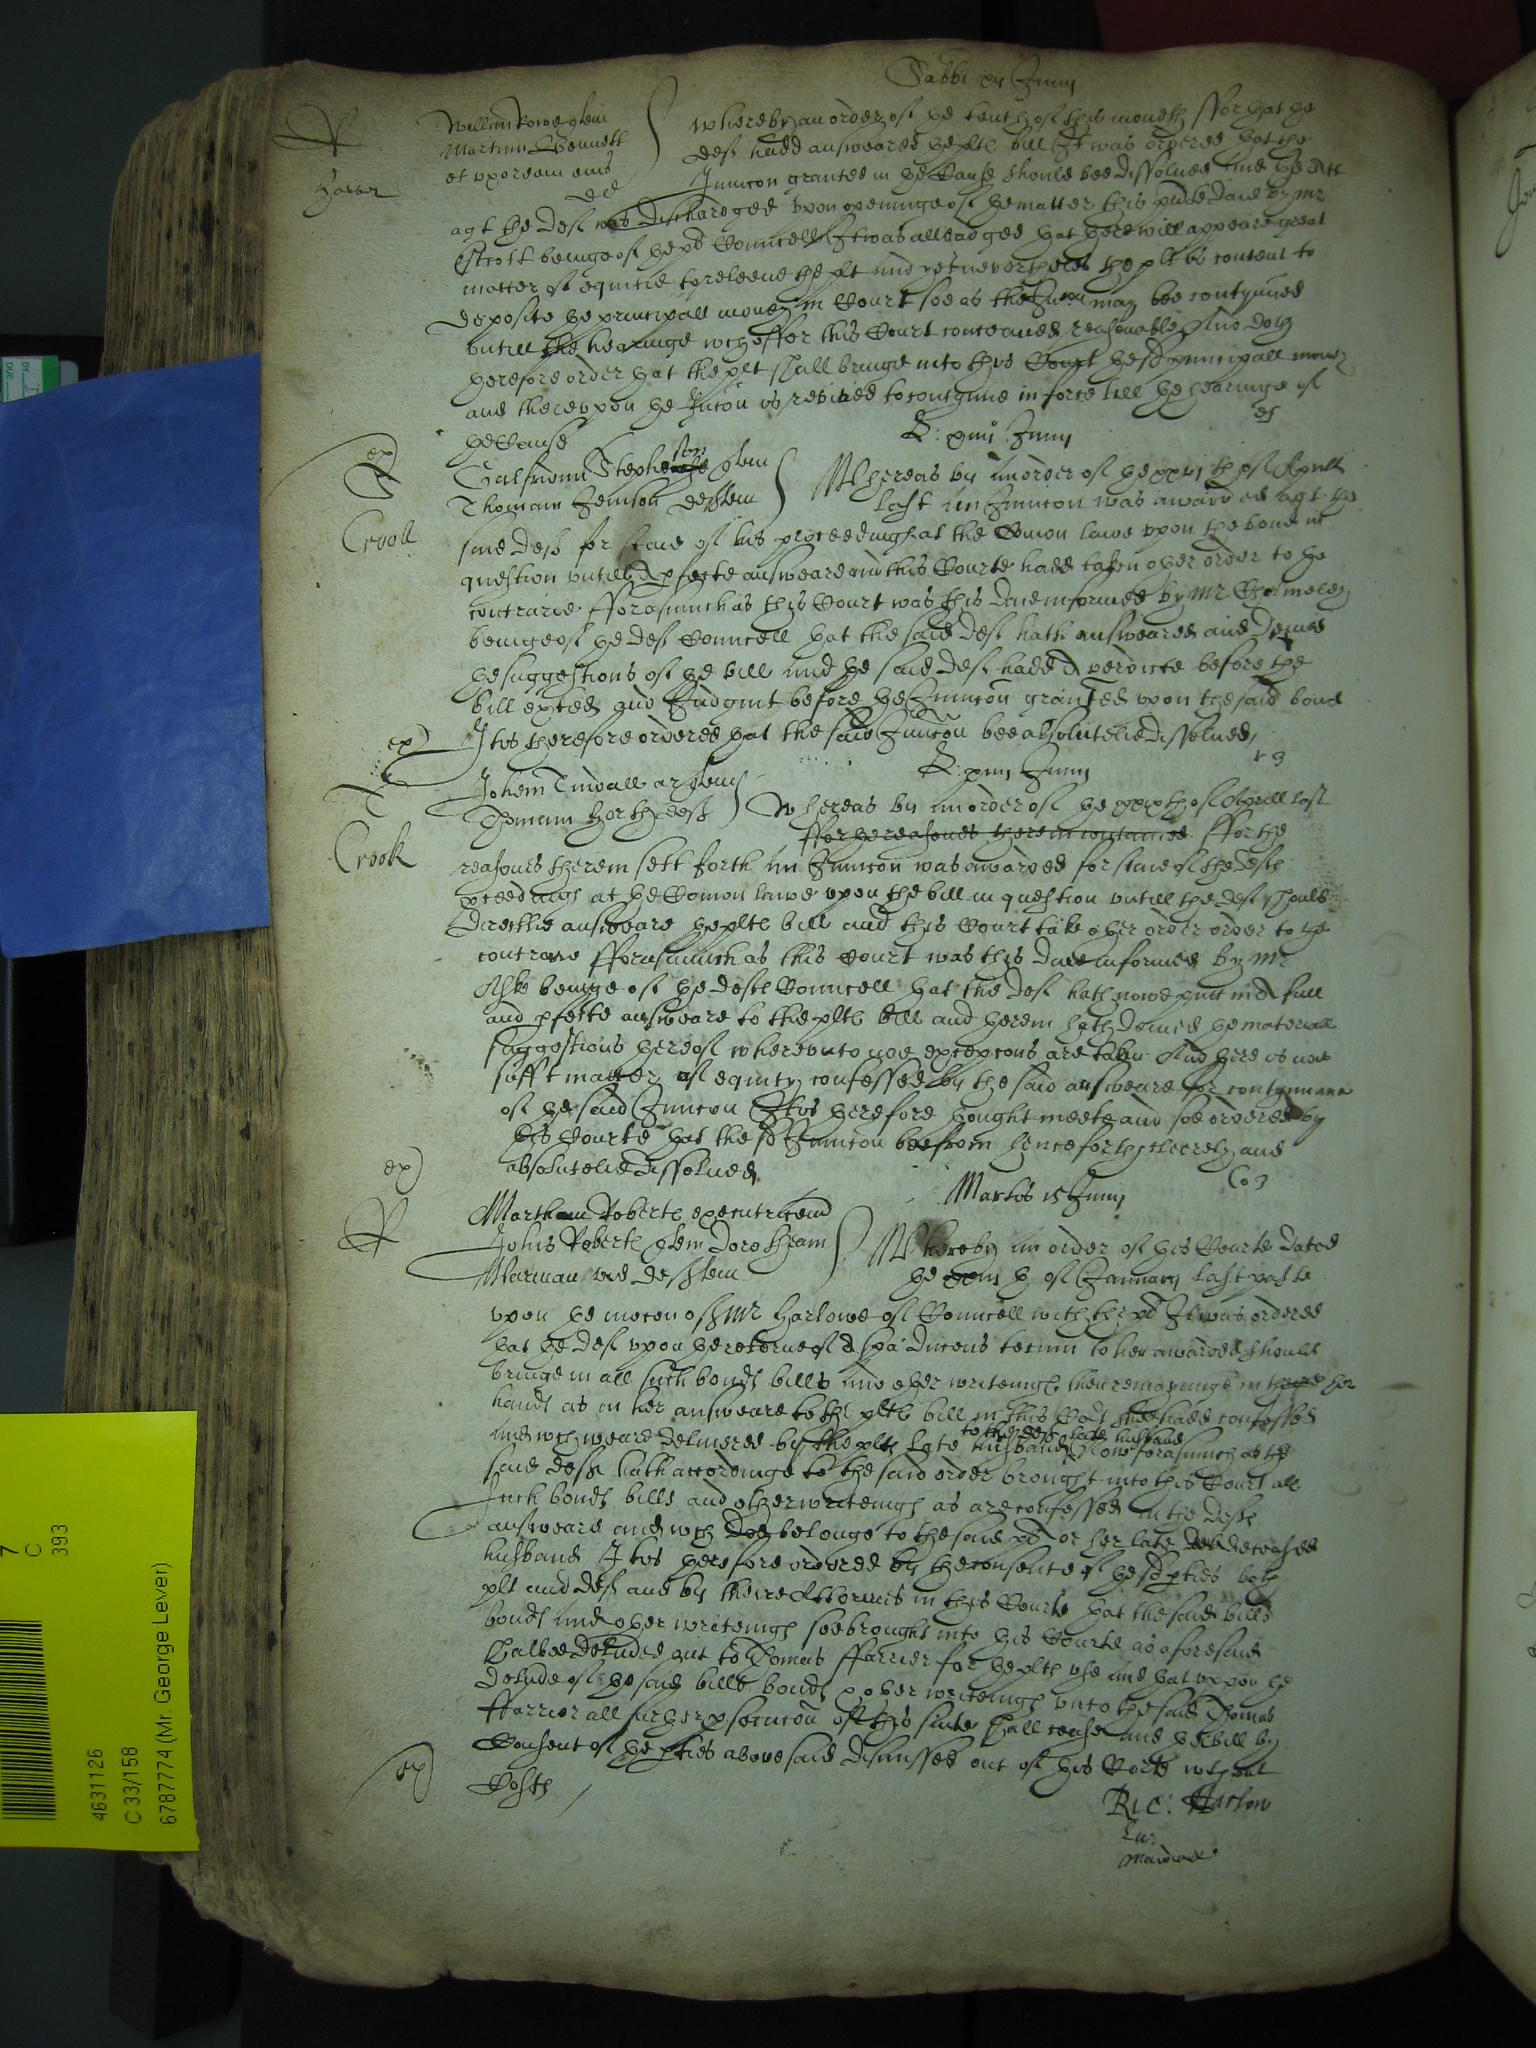 Sabbi xii Junij
Willim Rowe quer
Martinu Bennett
et uxorem eius
def
whereby an order of the tenth of this moneth ffor that the
deft hadd answeared the plts bill It was ordered that the
Iniuncon granted in the Cause should bee dissolued and the Att
agt the deft was discharged vpon openinge of the matter this pnte daie by Mr
Estcott beinge of the pts Councell It was alleadged that there will appeare great
matter of equitie to releeue the plt and yet neuertheles the plt is content to
deposite the principall money in Court soe as the Iniun may bee contynued
vntill the hearinge wch offer this Court conceaued reasonable And doth
therefore order that the plt shall bringe into this Court the sd principall money
and therevpon the Iniucon is reviued to contynue in force till the hearinge of
the Cause
Galfridum Stephenson quer
Thomam Jenison deftem
Crook
Whereas by an order of the xxvjth of Aprill
last an Iniuncon was awarded agt the
said deft for staie of his proceedings at the Comon lawe vpon the bond in
question vntill a pfecte answeare and this Courte hadd taken other order to the
contrarie. fforasmuch as this Court was this daie informed by Mr Cholmeley
beinge of the defts Councell that the said deft hath answeared and denied
the suggestions of the bill and the said deft hadd a verdicte before the
bill exhted and Iudgmt before the Iniuncon granted vpon the said bond
It is therefore ordered that the said Iniuncon bee absolutelie dissolued
Johem Tindall ar quer
Thomam North deft
Crook
Whereas by an order of the xxixth of Aprill last
ffor the reasons therein contained ffor the
reasons therein sett forth an Iniuncon was awarded for staie of the defts
pceedings at the Comon lawe vpon the bill in question vntill the deft should
directlie answeare the plts bill and this Court take other order order to the
contrarie fforasmuch as this Court was this daie informed by Mr
Aske beinge of the defts Councell that the deft hath nowe putt in a full
and pfecte answeare to the plts bill and therein hath denied the materiall
suggestions thereof wherevnto noe excepcons are taken And there is not
sufft matter of equity confessed by the said answeare for contynuance
of the said Iniuncon It is therefore thought meete and soe ordered by
this Courte that the sd Iniuncon bee from henceforth cleerely and
absolutelie dissolued
Martis 15 Junij
Martham Roberts executricem
Johis Roberts quer Dorotheam
Marman vid deftem
Whereby an order of this Courte dated
the th of January last paste
vpon the mocon of Mr Harlowe of Councell with the pt It was ordered
that the deft vpon the retorne of a spa ducens tecum to her awarded should
bringe in all such bonds bills and other writeings then remayninge in her
hands as in her answeare to the plts bill in this Cort shee hadd confessed
to the defts late husband
and wch weare deliuered by the plts late husband Now forasmuch as the
said deft hath accordinge to the said order brought into this Court all
such bonds bills and other writeings as are confessed in the defts
answeare and wch doe belonge to the said pt or her late deceased
husband It is therefore ordered by the consente of the sd pties both
plt and deft and by theire Attornies in this Courte that the said bills
bonds and other writeings soe brought into this Courte as aforesaid
shalbee deliuered out to Thomas ffarrier for the plts vse and that vppon the
deliude of the said bills bonds & other writeings vnto the said Thomas
ffarrior all further psecucon of this suite shall cease and the bill by
Consent of the pties aboue said dismissed out of this Corte without
Costs
Ric:
4631126
C 33/158
6787774 (Mr. George Lever)
7
C
393